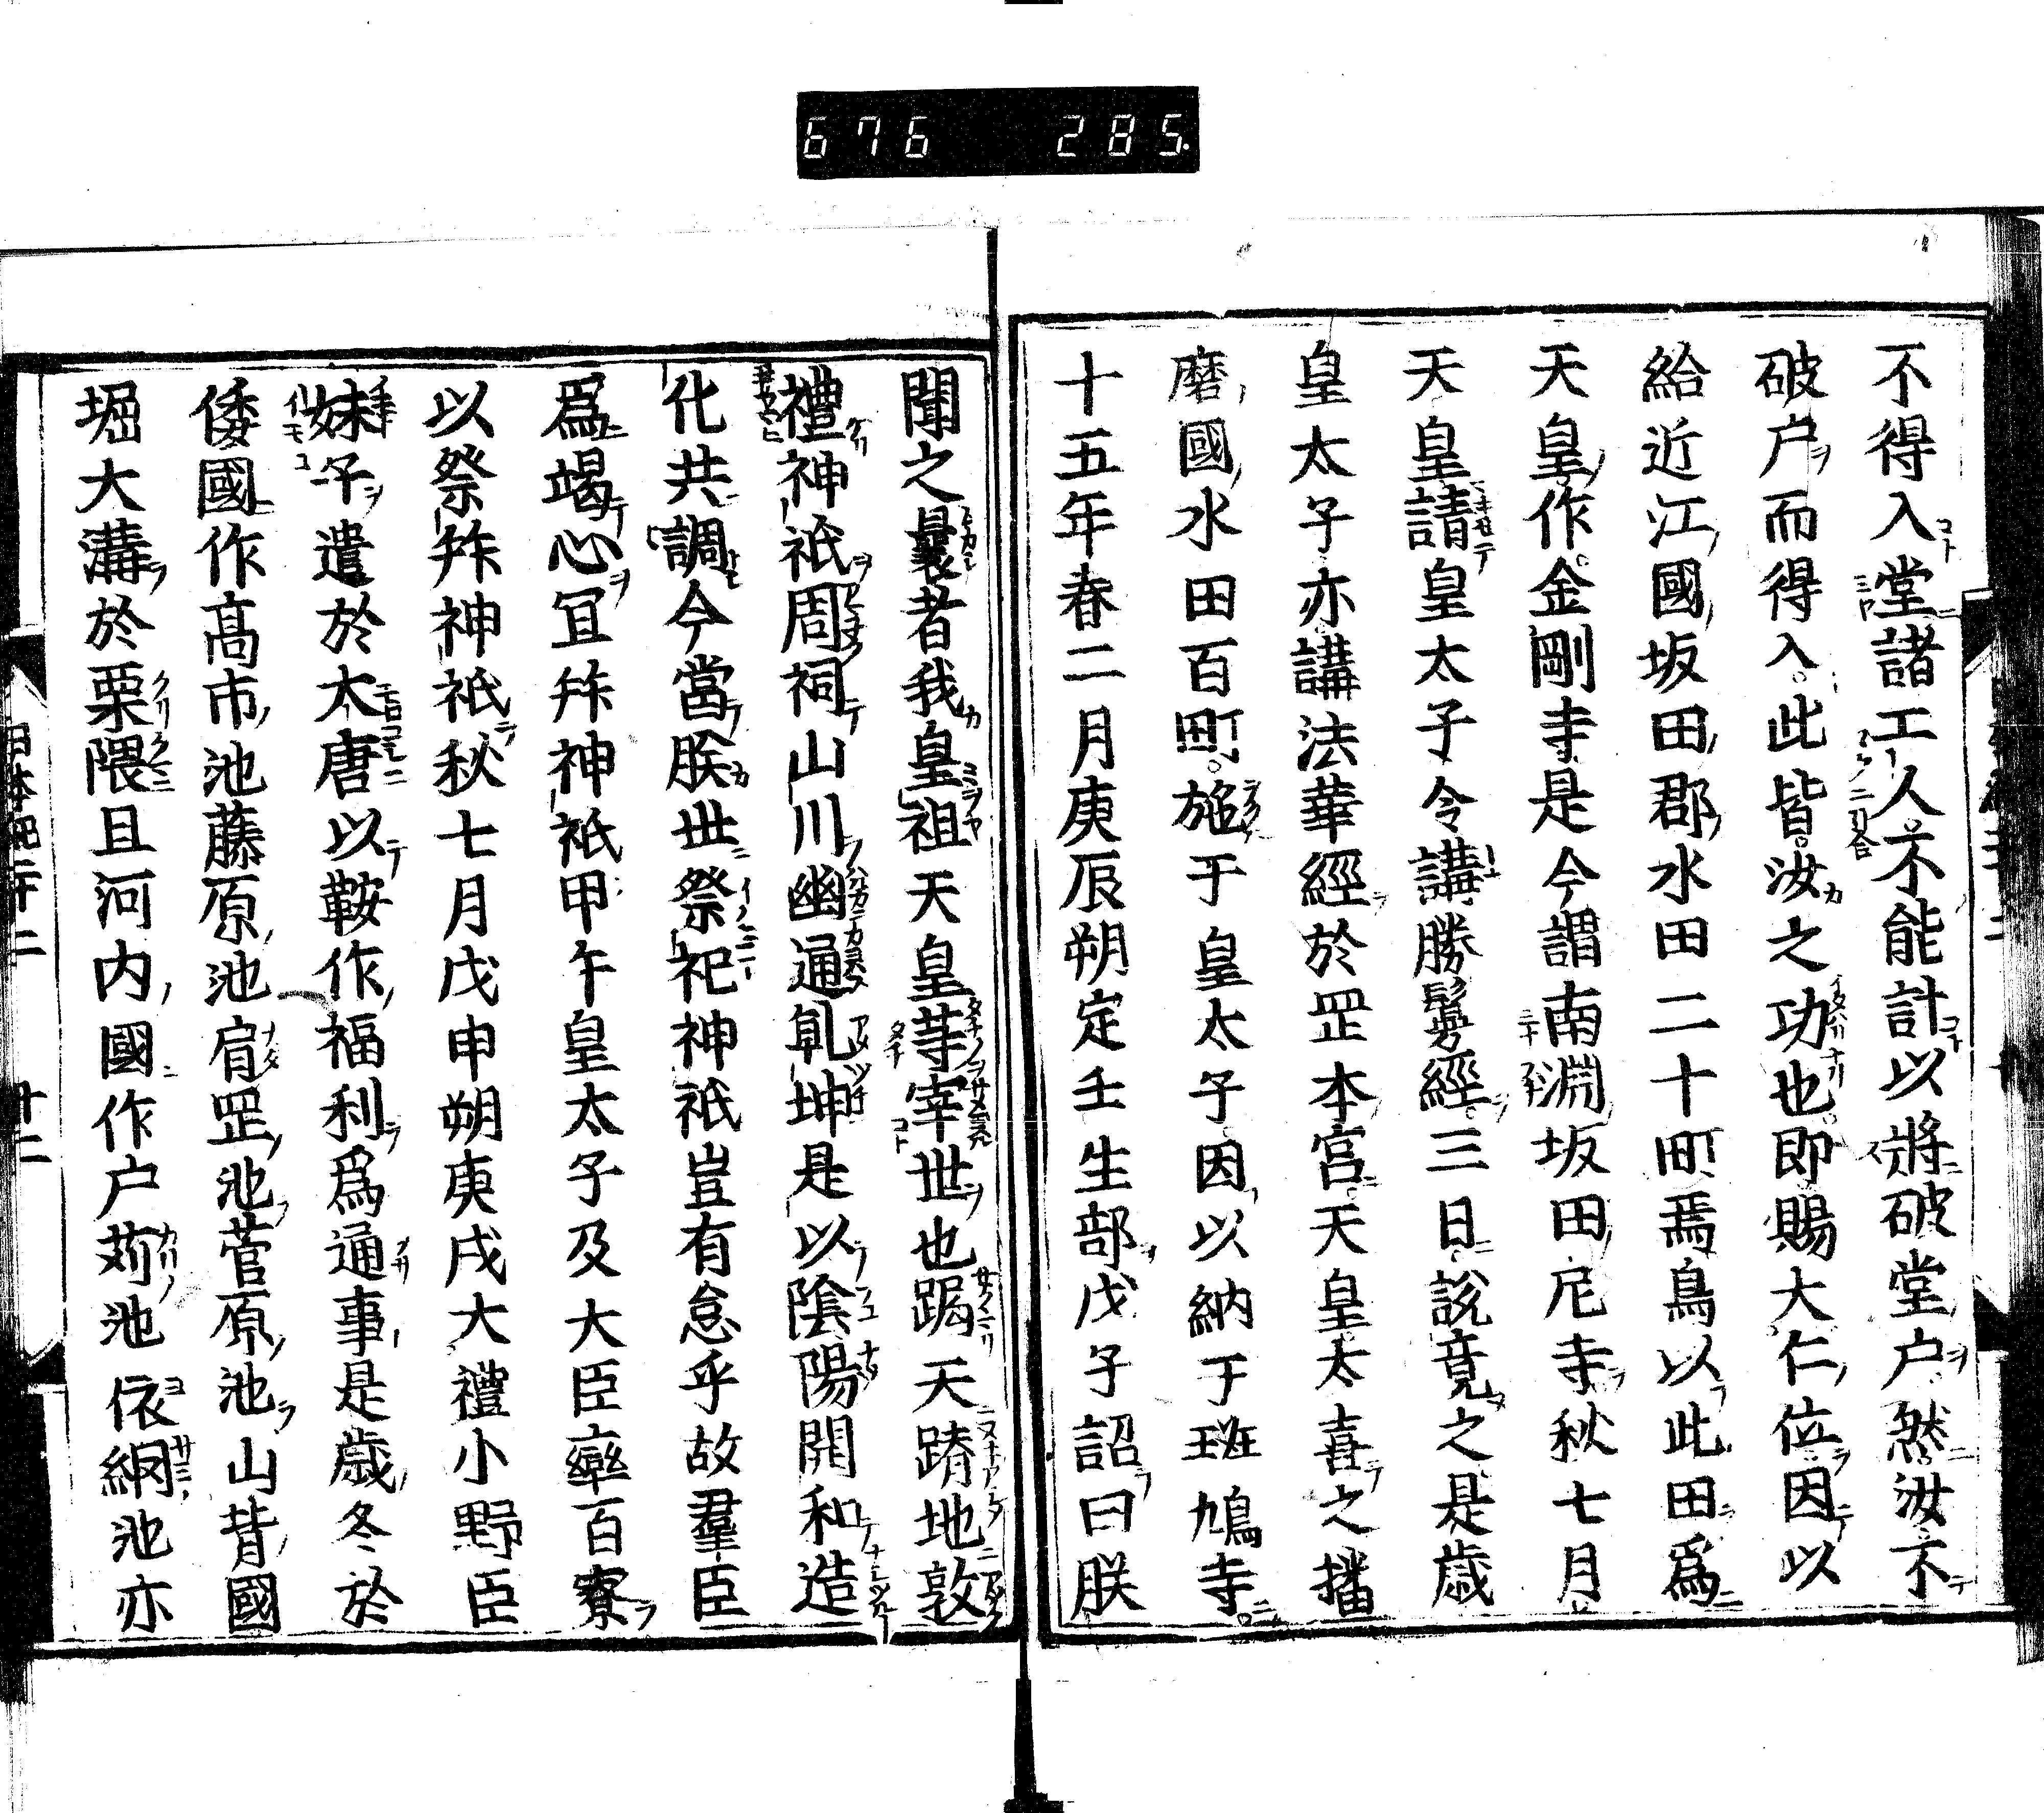 676 285
不得入堂諸工人不能計以將破堂戸然汝不
破戸而得入此皆汝之功也即賜大仁位因以
給近江國坂田郡水田二十町焉鳥以此田爲
天皇作金剛寺是今謂南淵坂田尼寺秋七月
天皇請皇太子令講勝鬘經三日説竟之是歳
皇太子亦講法華經於罡本宮天皇太喜之播
磨國水田百町施于皇太子因以納于班鳩寺
十五年春二月庚辰朔定壬生部戊子詔曰朕
聞之曩者我皇祖天皇等宰世也跼天蹐地敦
禮神祇周祠山川幽通乹坤是以陰陽開和造
化共調今當朕世祭祀神祇豈有怠乎故羣臣
爲竭心冝拜神祇甲午皇太子及大臣率百寮
以祭拜神祇秋七月戊申朔庚戌大禮小野臣
妹子遣於太唐以鞍作福利爲通事是歳冬於
倭國作髙市池藤原池肩罡池菅原池山背國
堀大溝於栗隈且河内國作戸苅池依網池亦
日本紀二十二 廿二